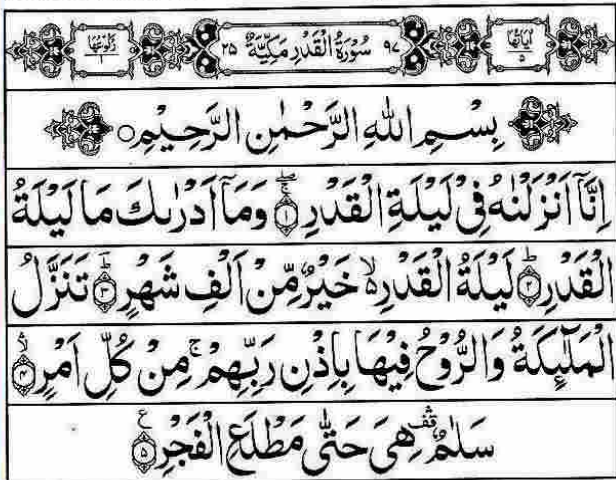 اٰيَاتُهَا ٥ ٩٧ سُوْرَةُ الْقَدْرِ مَكِّيَّةٌ ٢٥ رُكُوْعُهَا ١
بِسْمِ اللهِ الرَّحْمٰنِ الرَّحِيْمِ ○
اِنَّآ اَنْزَلْنٰهُ فِيْ لَيْلَةِ الْقَدْرِ ۚۖ ﴿١﴾ وَمَآ اَدْرٰىكَ مَا لَيْلَةُ
الْقَدْرِ ؕ ﴿٢﴾ لَيْلَةُ الْقَدْرِ ۙ۬ خَيْرٌ مِّنْ اَلْفِ شَهْرٍ ؕ ﴿٣﴾ تَنَزَّلُ
الْمَلٰٓئِكَةُ وَالرُّوْحُ فِيْهَا بِاِذْنِ رَبِّهِمْ ۚ مِنْ كُلِّ اَمْرٍ ۙۛ ﴿٤﴾
سَلٰمٌ ۛ قف هِيَ حَتّٰى مَطْلَعِ الْفَجْرِ ﴿٥﴾ ع